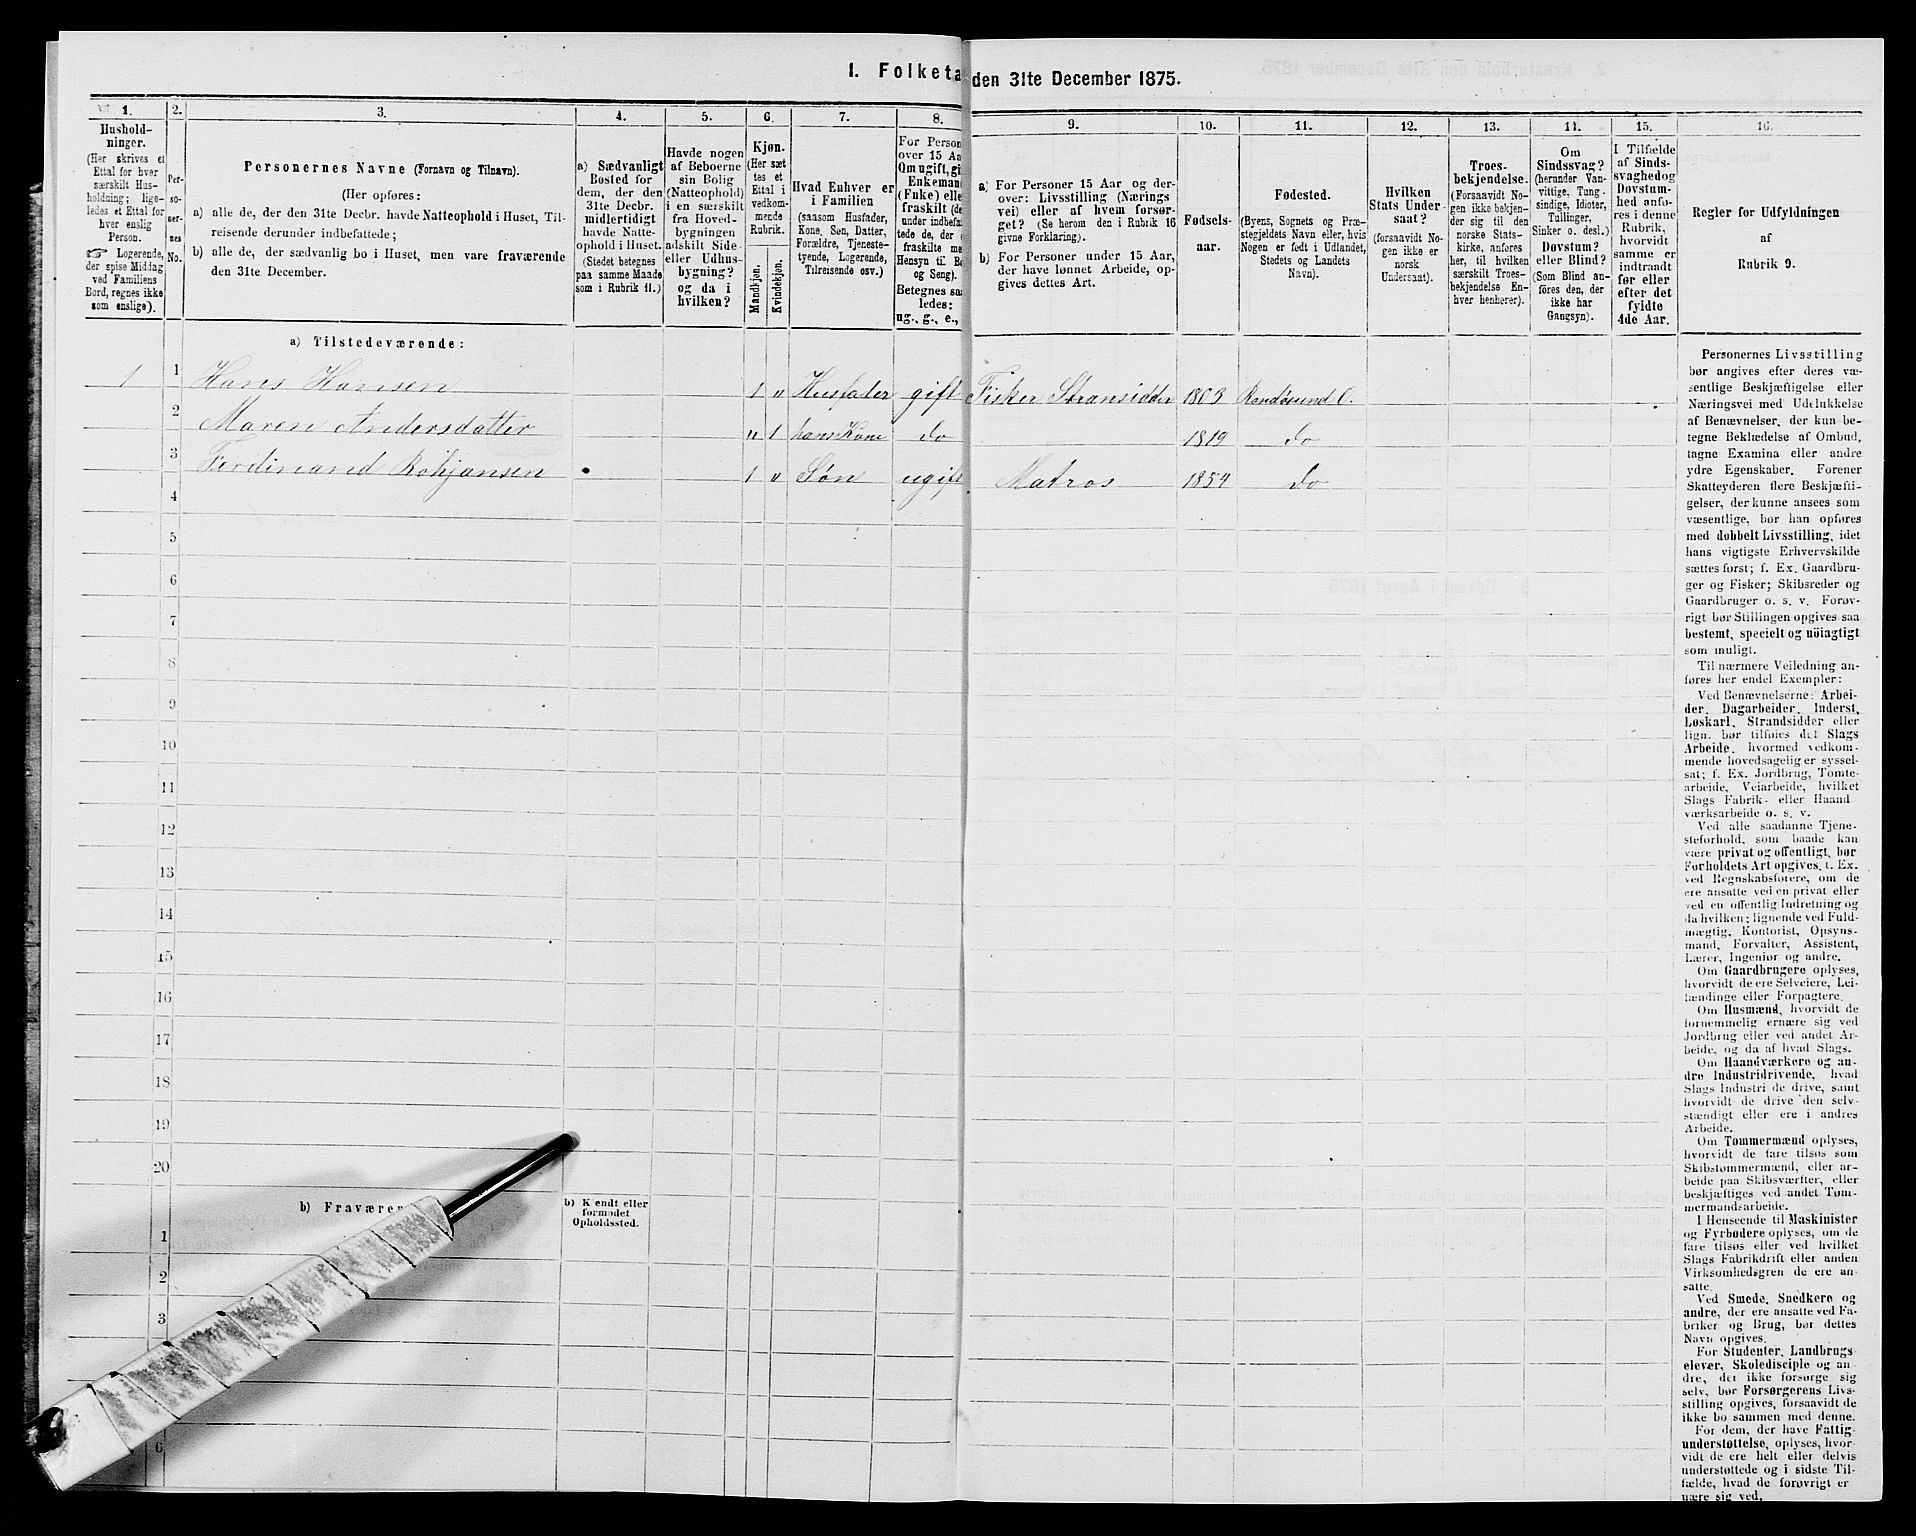 I. Folketa
den 31te December 1875.
1.
Hushold-
ninger.
(Her skrives et
Ettal for hver
særskilt Hus-
holdning; lige-
ledes et Ettal for
hver enslig
Person.
☞ Logerende,
der spise Middag
ved Familiens
Bord, regnes ikke
som enslige).
2.
Per-
so-
ner-
nes
No.
3.
Personernes Navne (Fornavn og Tilnavn).
(Her opføres:
a) alle de, der den 31te Decbr. havde Natteophold i Huset, Til-
reisende derunder indbefattede;
b) alle de, der sædvanlig bo i Huset, men vare fraværende
den 31te December.
4.
a) Sædvanligt
Bosted for
dem, der den
31te Decbr.
midlertidigt
havde Natte-
ophold i Huset.
(Stedet betegnes
paa samme Maade
som i Rubrik 11.)
5.
Havde nogen
af Beboerne
sin Bolig
(Natteophold)
i en særskilt
fra Hoved-
bygningen
adskilt Side-
eller Udhus-
bygning?
og da i
hvilken?
6.
Kjøn.
(Her sæt
tes et
Ettal i
vedkom-
mende
Rubrik.
Mandkjøn.
Kvindekjøn.
7.
Hvad Enhver er
i Familien
(saasom Husfader,
Kone, Søn, Datter,
Forældre, Tjeneste-
tyende, Logerende,
Tilreisende osv.)
8.
For Person
over 15 Aa
Om ugift, gi
Enkemand
(Enke) elle
fraskilt (de
under indbefat
tede de, der e
fraskilte me
Hensyn til Bo
og Seng).
Betegnes saa
ledes:
ug., g., e.,
9.
a) For Personer 15 Aar og der-
over: Livsstilling (Nærings
vei) eller af hvem forsør-
get? (Se herom den i Rubrik 16
givne Forklaring).
b) For Personer under 15 Aar,
der have lønnet Arbeide, op-
gives dettes Art.
10.
Fødsels-
aar.
11.
Fødested.
(Byens, Sognets og Præ-
stegjeldets Navn eller, hvis
Nogen er født i Udlandet,
Stedets og Landets
Navn).
12.
Hvilken
Stats Under-
saat?
(forsaavidt No-
gen ikke er
norsk
Undersaat).
13.
Troes-
bekjendelse.
(Forsaavidt No-
gen ikke bekjen-
der sig til den
norske Stats-
kirke, anføres
her, til hvilken
særskilt Troes-
bekjendelse En-
hver henhører).
14.
Om
Sindssvag?
(herunder Van-
vittige, Tung-
sindige, Idioter,
Tullinger,
Sinker o. desl.)
Døvstum?
eller Blind?
(Som Blind an-
føres den, der
ikke har
Gangsyn).
15.
I Tilfælde
af Sinds-
svaghed og
Døvstum-
hed anfø-
res i denne
Rubrik,
hvorvidt
samme er
indtraadt
før eller
efter det
fyldte
4de Aar.
16.
Regler for Udfyldningen
af
Rubrik 9.
a) Tilstedeværende:
1 1 Hans Hansen 1 " Husfader gift Fisker Stransidder 1803 Randøsund O.
2 Maren Andersdatter " 1 hans Kone do 1819 do
3 Ferdinand Rohjansen 1 " Søn ugift Matros 1854 do
4
5
6
7
8
9
10
11
12
13
14
15
16
17
18
19
20
b) Fraværen
b) Kjendt eller
formodet
Opholdssted.
1
2
3
6
Personernes Livsstilling
bør angives efter deres væ-
sentlige Beskjæftigelse eller
Næringsvei med Udelukkelse
af Benævnelser, der kun be-
tegne Beklædelse af Ombud,
tagne Examina eller andre
ydre Egenskaber. Forener
Skatteyderen flere Beskjæfti-
gelser, der kunne ansees som
væsentlige, bør han opføres
med dobbelt Livsstilling, idet
hans vigtigste Erhvervskilde
sættes først; f. Ex. Gaardbru-
ger og Fisker; Skibsreder og
Gaardbruger o. s. v. Forøv-
rigt bør Stillingen opgives saa
bestemt, specielt og nöiagtigt
som muligt.
Til nærmere Veiledning an-
føres her endel Exempler:
Ved Benævnelserne: Arbei-
der, Dagarbeider, Inderst,
Løskarl, Strandsidder eller
lign. bør tilføies det Slags
Arbeide, hvormed vedkom-
mende hovedsagelig er syssel-
sat; f. Ex. Jordbrug, Tomte-
arbeide, Veiarbeide, hvilket
Slags Fabrik- eller Haand
værksarbeide o. s. v.
Ved alle saadanne Tjene-
steforhold, som baade kan
være privat og offentligt, bør
Forholdets Art opgives, f. Ex.
ved Regnskabsførere, om de
ere ansatte ved en privat eller
ved en offentlig Indretning og
da hvilken; lignende ved Fuld-
mægtig, Kontorist, Opsyns-
mand, Forvalter, Assistent,
Lærer, Ingeniør og andre.
Om Gaardbrugere oplyses,
hvorvidt de ere Selveiere, Lei-
lændinge eller Forpagtere.
Om Husmænd, hvorvidt de
fornemmelig ernære sig ved
Jordbrug eller ved andet Ar-
beide, og da af hvad Slags.
Om Haandværkere og an-
dre Industridrivende, hvad
Slags Industri de drive, samt
hvorvidt de drive den selv-
stændigt eller ere i andres
Arbeide.
Om Tømmermænd oplyses,
hvorvidt de fare tilsøs som
Skibstømmermænd, eller ar-
beide paa Skibsværfter, eller
beskjæftiges ved andet Tøm-
mermandsarbeide.
I Henseende til Maskinister
og Fyrbødere oplyses, om de
fare tilsøs eller ved hvilket
Slags Fabrikdrift eller anden
Virksomhedsgren de ere an-
satte.
Ved Smede, Snedkere og
andre, der ere ansatte ved Fa-
briker og Brug, bør dettes
Navn opgives.
For Studenter, Landbrugs-
elever, Skoledisciple og an-
dre, det ikke forsørge sig
selv, bør Forsørgerens Livs-
stilling opgives, forsaavidt de
ikke bo sammen med denne.
For dem, der have Fattig-
understøttelse, oplyses, hvor-
vidt de ere helt eller delvis
understøttede og i sidste Til-
fælde, hvad de forøvrigt er
nære sig ved.